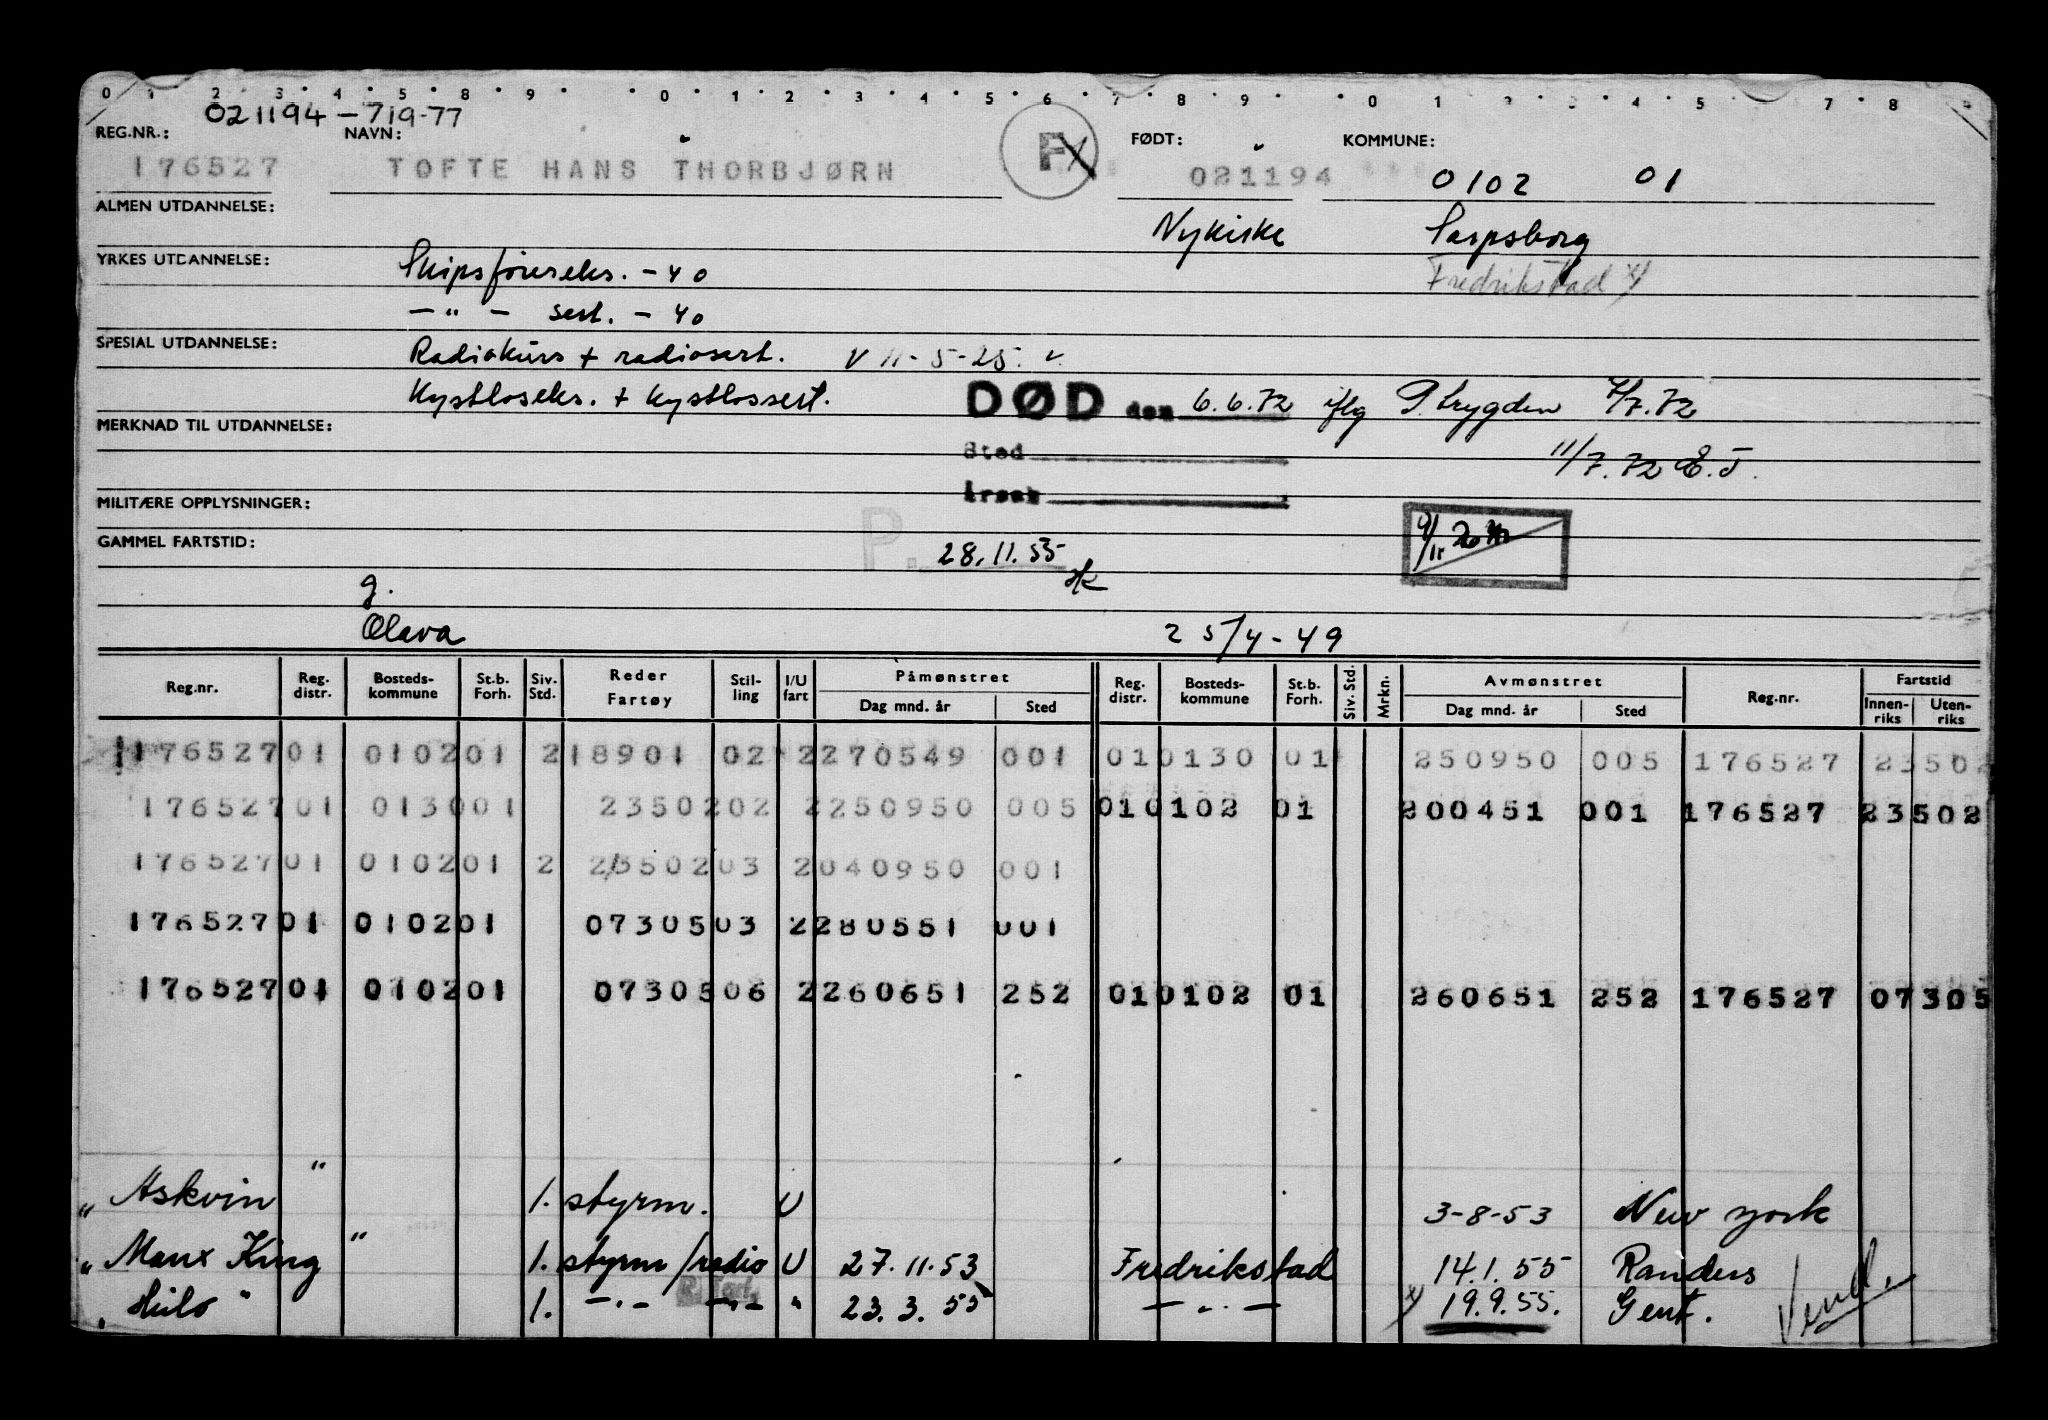 0 1 2 3 4 5 8 9 0 1 2 3 4 5 6 7 8 9 0 1 4 5 7 8
021194-719-77
REG.NR.: NAVN: FØDT: KOMMUNE:
176527 TOFTE HANS THORBJØRN F 021194 0102 01
ALMEN UTDANNELSE: Nykirke Sarpsborg
YRKES UTDANNELSE: Skipsførereks. - 40 Fredrikstad x/
- " - sert. - 40
SPESIAL UTDANNELSE: Radiokurs + radiosert. v 11-5-25. v
Kystloseks. + kystlossert. DØD den 6.6.72 iflg P.trygden 4/7.72
MERKNAD TIL UTDANNELSE:
Sted 11/7.72 E.T.
Årsak
MILITÆRE OPPLYSNINGER:
GAMMEL FARTSTID: P. 28.11.55
g.
Olava 25/4-49
Reg.nr. Reg. distr. Bosteds- kommune St.b. Forh. Siv. Std. Reder Fartøy Stil- ling I/U fart Påmønstret Dag mnd. år Sted Reg. distr. Bosteds- kommune St.b. Forh. Siv. Std. Mrkn. Avmønstret Dag mnd. år Sted Reg.nr. Fartstid Innen- riks Uten- riks
176527 01 0102 01 2 18901 02 2 270549 001 01 0130 01 250950 005 176527 23502
176527 01 0130 01 23502 02 2 250950 005 01 0102 01 200451 001 176527 23502
176527 01 0102 01 2 23502 03 2 040950 001
176527 01 0102 01 07305 03 2 280551 001
176527 01 0102 01 07305 06 2 260651 252 01 0102 01 260651 252 176527 07305
" Askvin " 1. styrm. U 3-8-53 New York
" Manx King " 1. styrm/radio U 27.11.53 Fredrikstad 14.1.55 Randers
" Hilo " 1. -"- -"- " 23.3.55 -"- x/ 19.9.55. Gent. Vend.